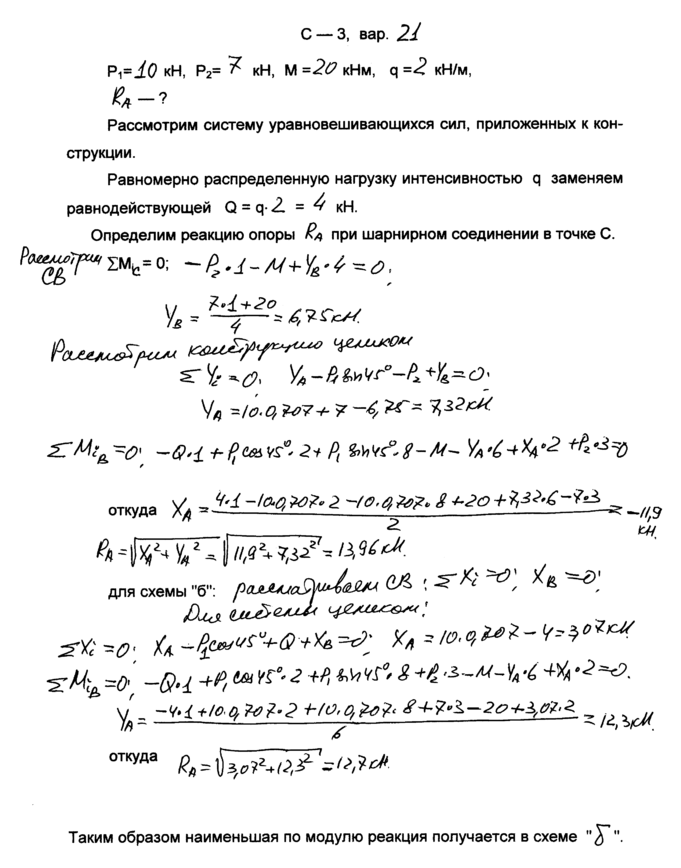 С — 3, вар. 21
P₁= 10 кН, P₂= 7 кН, M = 20 кНм, q = 2 кН/м,
R_A — ?
Рассмотрим систему уравновешивающихся сил, приложенных к кон-
струкции.
Равномерно распределенную нагрузку интенсивностью q заменяем
равнодействующей Q = q·2 = 4 кН.
Определим реакцию опоры R_A при шарнирном соединении в точке С.
Рассмотрим СВ ΣM_C = 0; −P₂·1−M+Y_B·4=0;
Y_B = (7·1+20)/4 = 6,75 кН.
Рассмотрим конструкцию целиком
ΣY_i=0; Y_A−P₁sin45°−P₂+Y_B=0;
Y_A=10·0,707+7−6,75=7,32 кН.
ΣM_iB=0; −Q·1+P₁cos45°·2+P₁sin45°·8−M−Y_A·6+X_A·2+P₂·3=0
откуда X_A = (4·1−10·0,707·2−10·0,707·8+20+7,32·6−7·3)/2 = −11,9 кН.
R_A=√(X_A²+Y_A²)=√(11,9²+7,32²)=13,96 кН.
для схемы "б": рассматриваем СВ: ΣX_i=0; X_B=0;
Для системы целиком:
ΣX_i=0; X_A−P₁cos45°+Q+X_B=0; X_A=10·0,707−4=3,07 кН.
ΣM_iB=0; −Q·1+P₁cos45°·2+P₁sin45°·8+P₂·3−M−Y_A·6+X_A·2=0.
Y_A= (−4·1+10·0,707·2+10·0,707·8+7·3−20+3,07·2)/6 = 12,3 кН.
откуда R_A=√(3,07²+12,3²)=12,7 кН.
Таким образом наименьшая по модулю реакция получается в схеме "б".